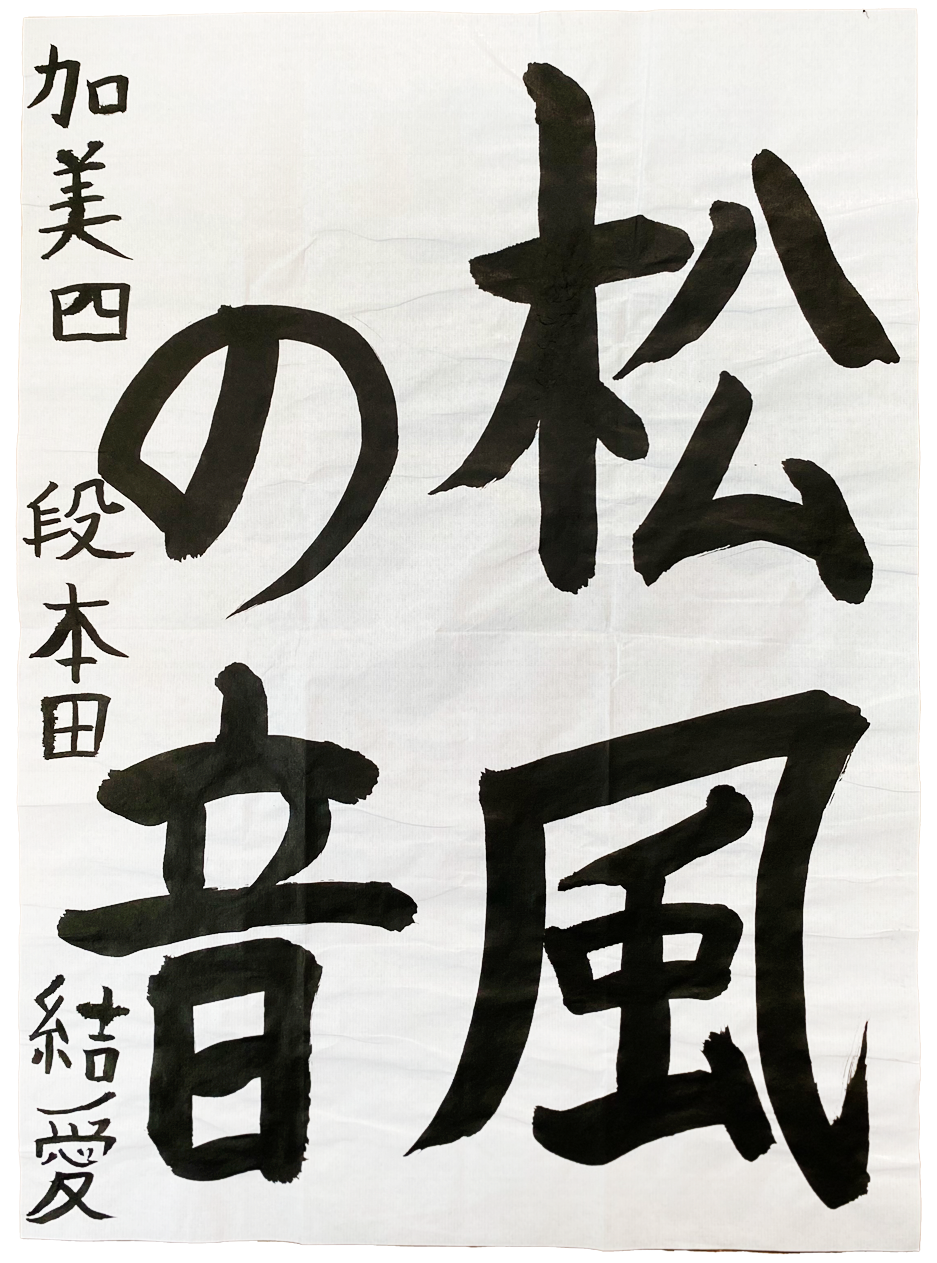 松風
の音
加美四 段本田 結愛